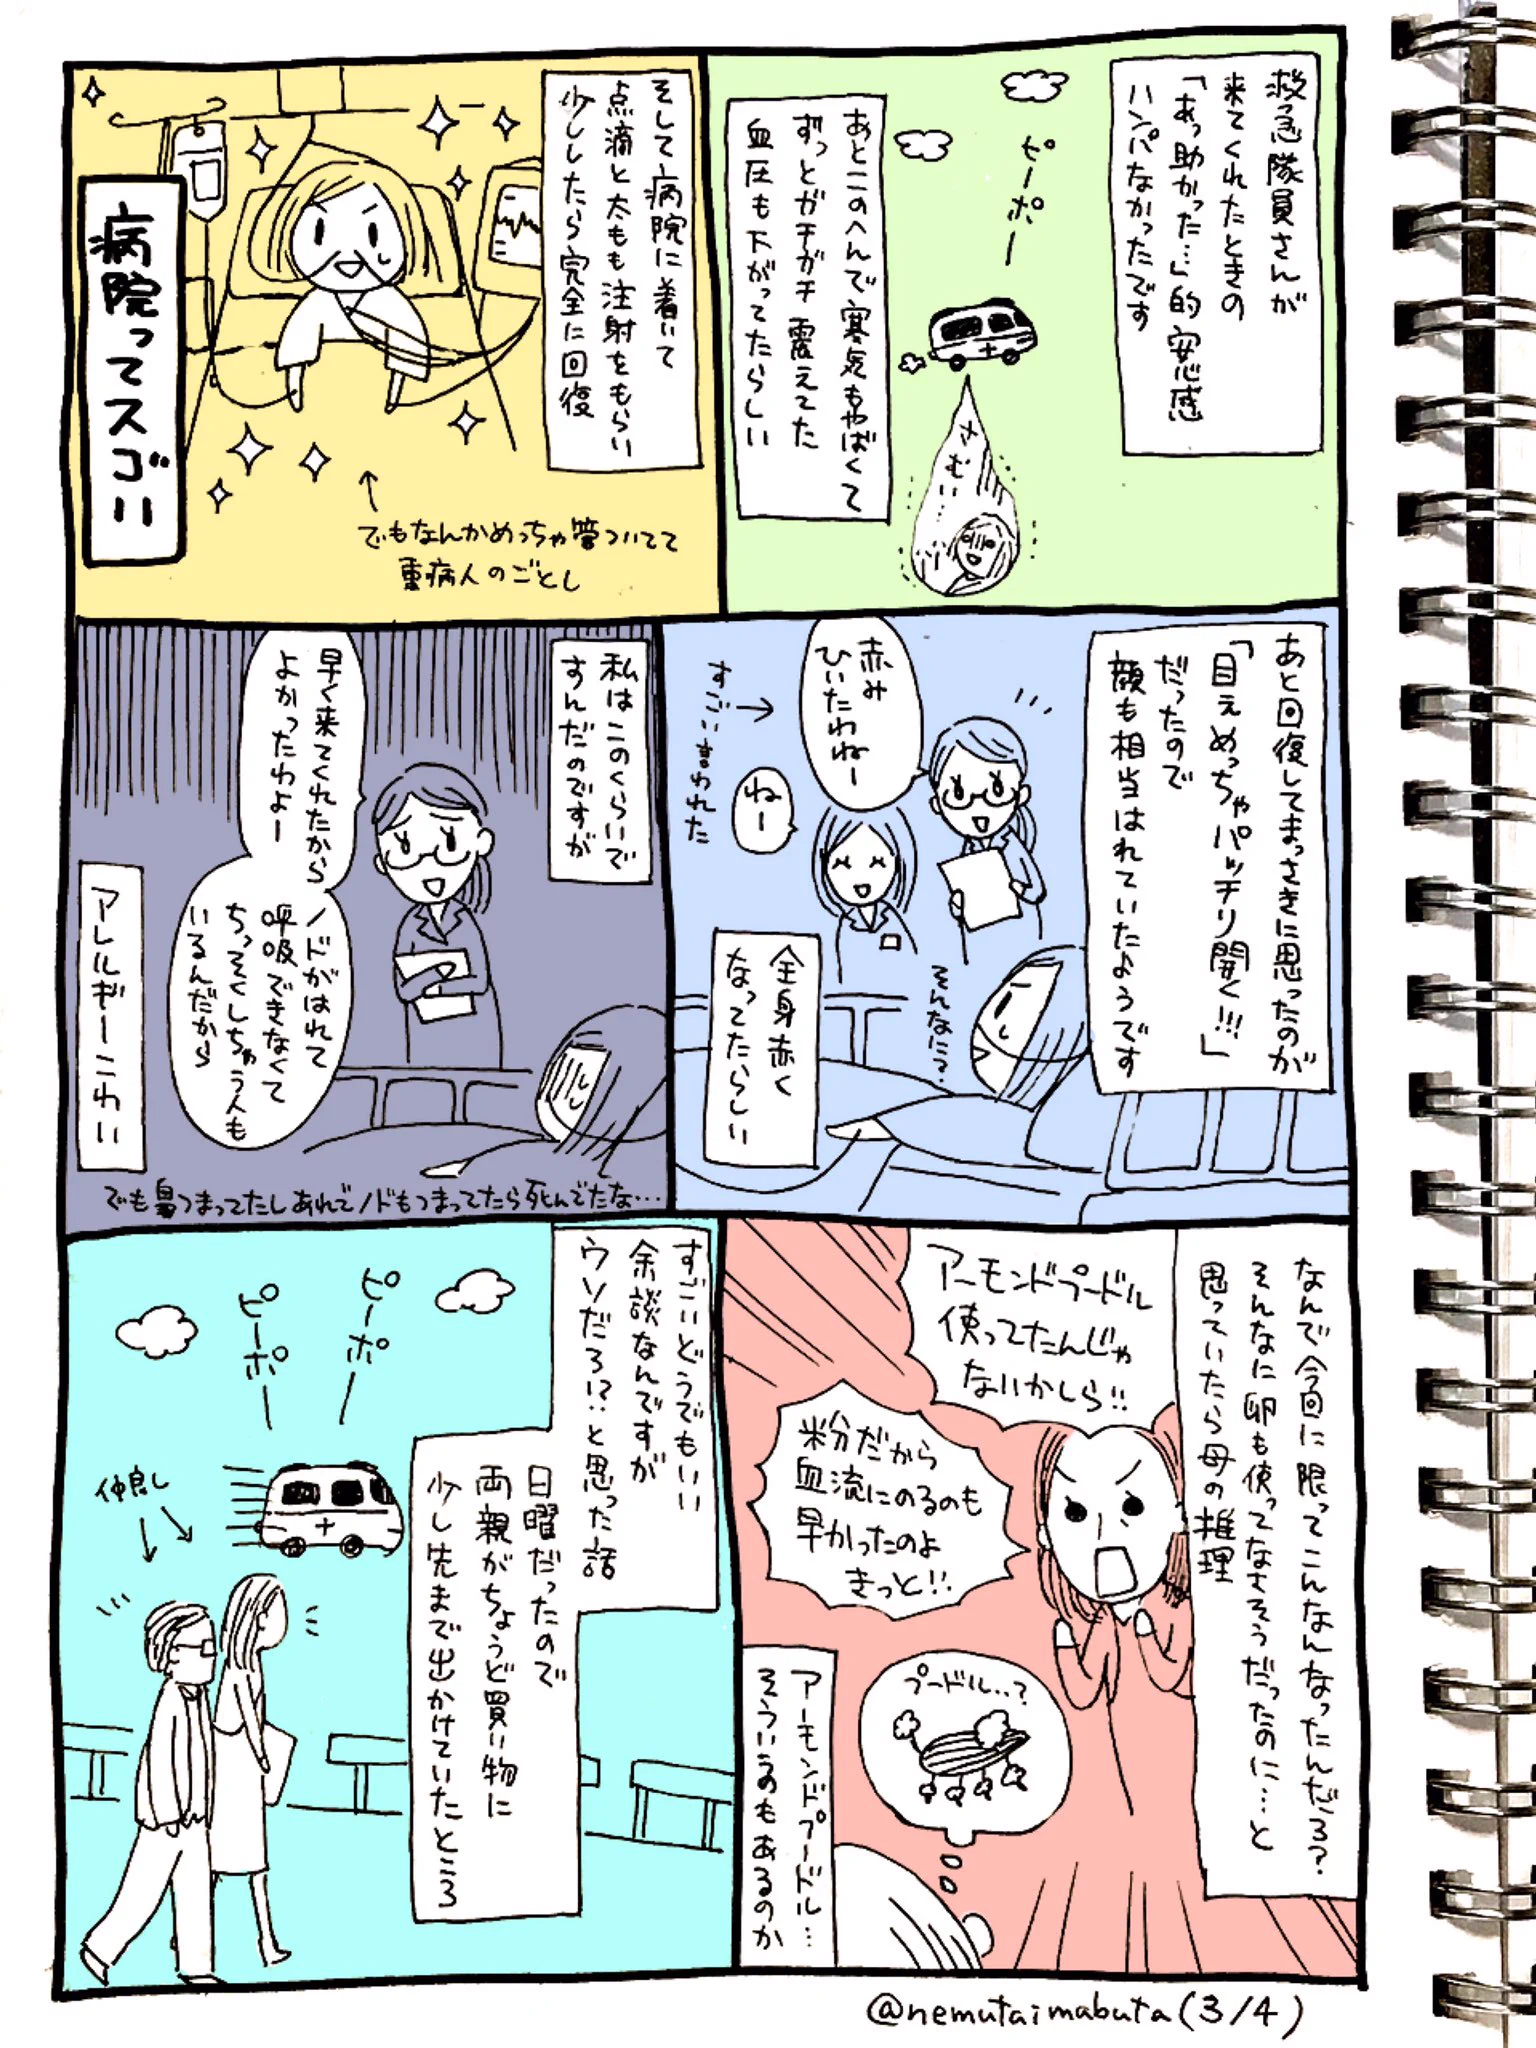 救急隊員さんが
来てくれたときの
「あっ助かった…」的安心感
ハンパなかったです
ピーポー
あとこのへんで寒気もやばくて
ずっとガチガチ震えてた
血圧も下がってたらしい
さむい…
そして病院に着いて
点滴と太もも注射をもらい
少ししたら完全に回復
病院ってスゴい
↑
でもなんかめっちゃ管ついてて
重病人のごとし
あと回復してまっさきに思ったのが
「目えめっちゃパッチリ開く!!!」
だったので
顔も相当はれていたようです
赤み
ひいたわねー
ねー
すごい言われた
→
そんなに?
全身赤く
なってたらしい
私はこのくらいで
すんだのですが
早く来てくれたから
よかったわよー
ノドがはれて
呼吸できなくて
ちっそくしちゃう人も
いるんだから
アレルギーこわい
でも鼻つまってたしあれでノドもつまってたら死んでたな…
なんで今回に限ってこんなんなったんだろ?
そんなに卵も使ってなさそうだったのに…と
思っていたら母の推理
アーモンドプードル
使ってたんじゃ
ないかしら!!
粉だから
血流にのるのも
早かったのよ
きっと!!
プードル…?
アーモンドプードル…
そういうのもあるのか
すごいどうでもいい
余談なんですが
ウソだろ!?と思った話
日曜だったので
両親がちょうど買い物に
少し先まで出かけていたところ
ピーポー
ピーポー
仲良し
@nemutaimabuta(3/4)